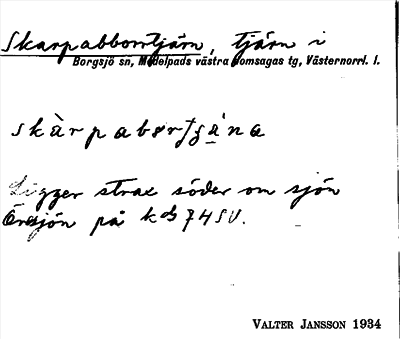 Skarpabborrtjärn, tjärn i
Borgsjö sn, Medelpads västra domsagas tg, Västernorrl. l.
skàrpabørtʃä̀na
Ligger strax söder om sjön
sjön på kbl 74 SV.
VALTER JANSSON 1934